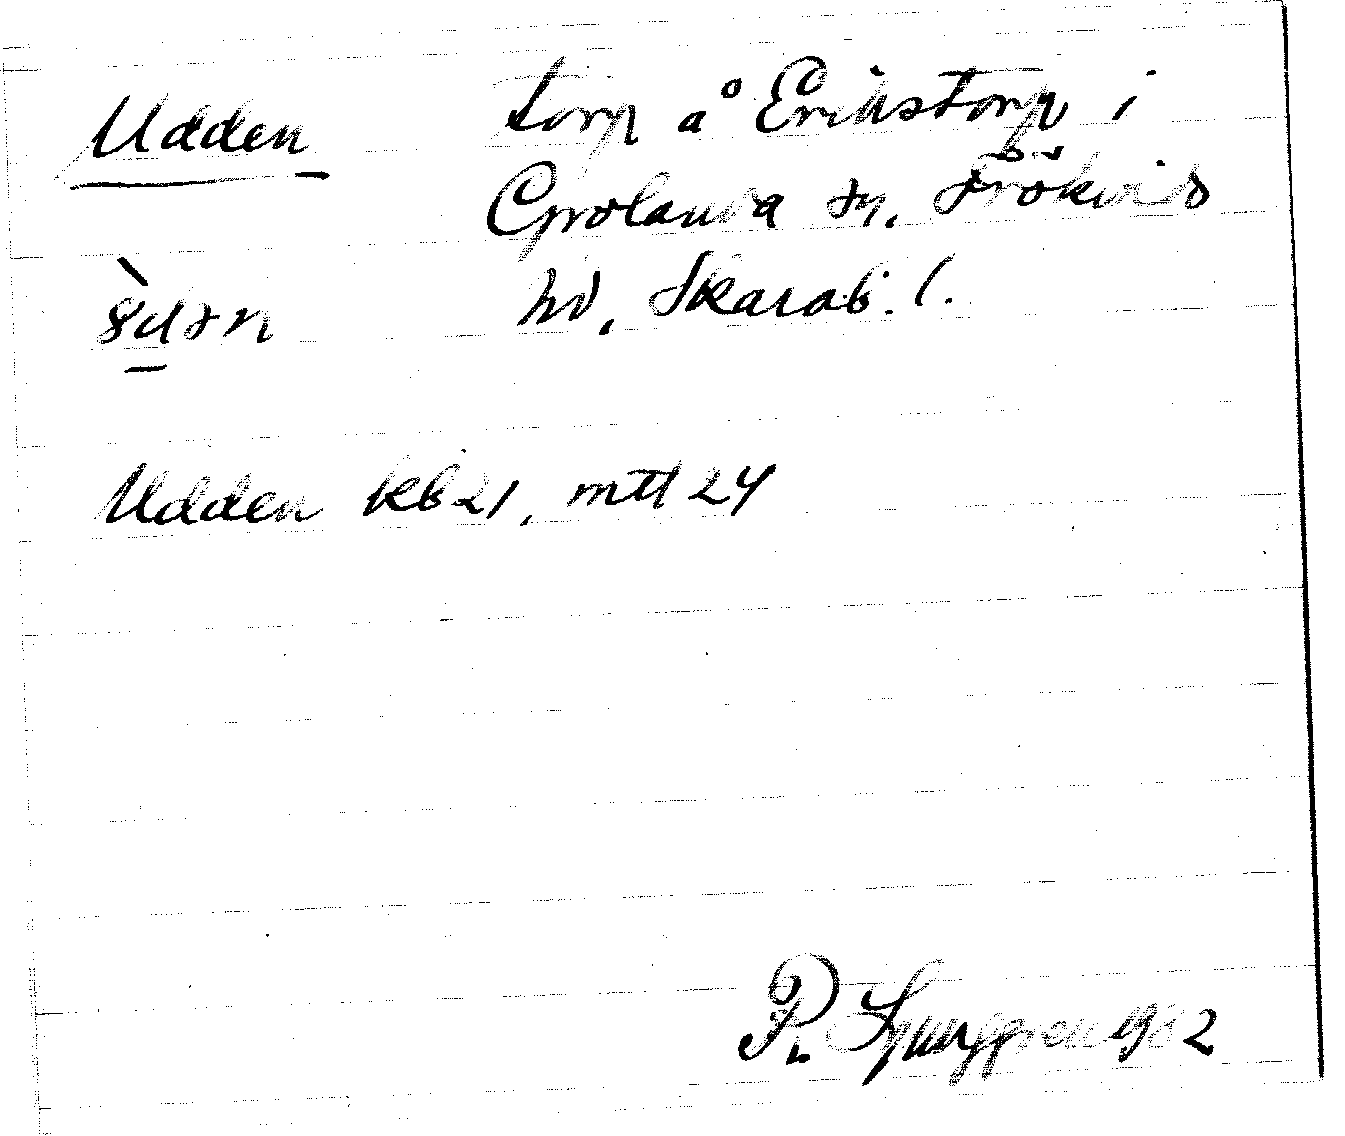 Udden torp å Erikstorp i
Grolanda sn, Frökinds
hd, Skarab. l.
Udden kb 21, mtl 24
R. Ljunggren 19 2